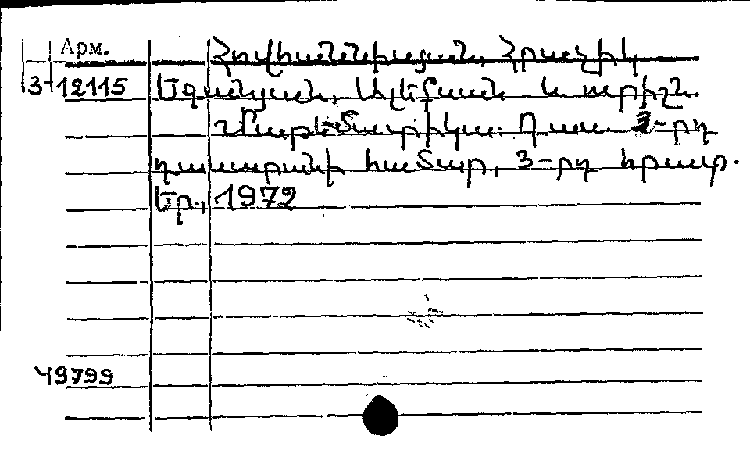 Арм.
Հովհաննիսյան, Հրաչիկ
3-12115 Եգանյան, Ալեման և ուրիշն.
Մաթեմատիկա: Դաս. 3-րդ
դասարանի համար, 3-րդ հրատ.
Եր., 1972
49799